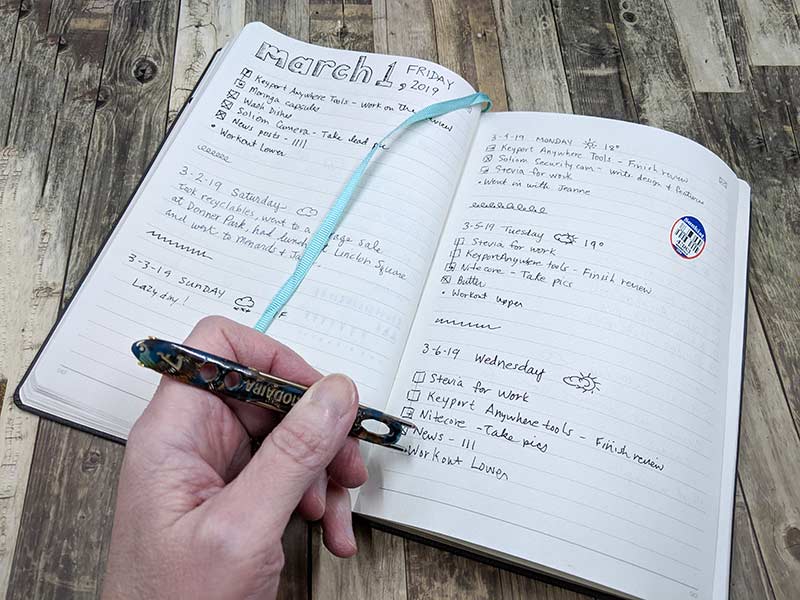 march 1, FRIDAY
2019
Keyport Anywhere Tools - work on the review
Moringa capsule
Wash Dishes
Soliom Camera - Take dead pic
News posts - 1111
• Workout Lower
3-2-19 Saturday
Took recyclables, went to a garage sale
at Donner Park, had lunch at Lincoln Square
and went to menards &
3-3-19 SUNDAY F
Lazy day!
3-4-19 MONDAY 18°
Keyport Anywhere Tools - Finish review
Soliom Security cam - write design & features
Stevia for work
• Went in with Jeanne
3-5-19 Tuesday 19°
Stevia for work
Keyport Anywhere tools - Finish review
Nitecore - Take pics
Butter
• Workout upper
3-6-19 Wednesday
Stevia for work
Keyport Anywhere tools - Finish review
Nitecore - Take pics
News - 111
• Workout Lower
KODAIRA